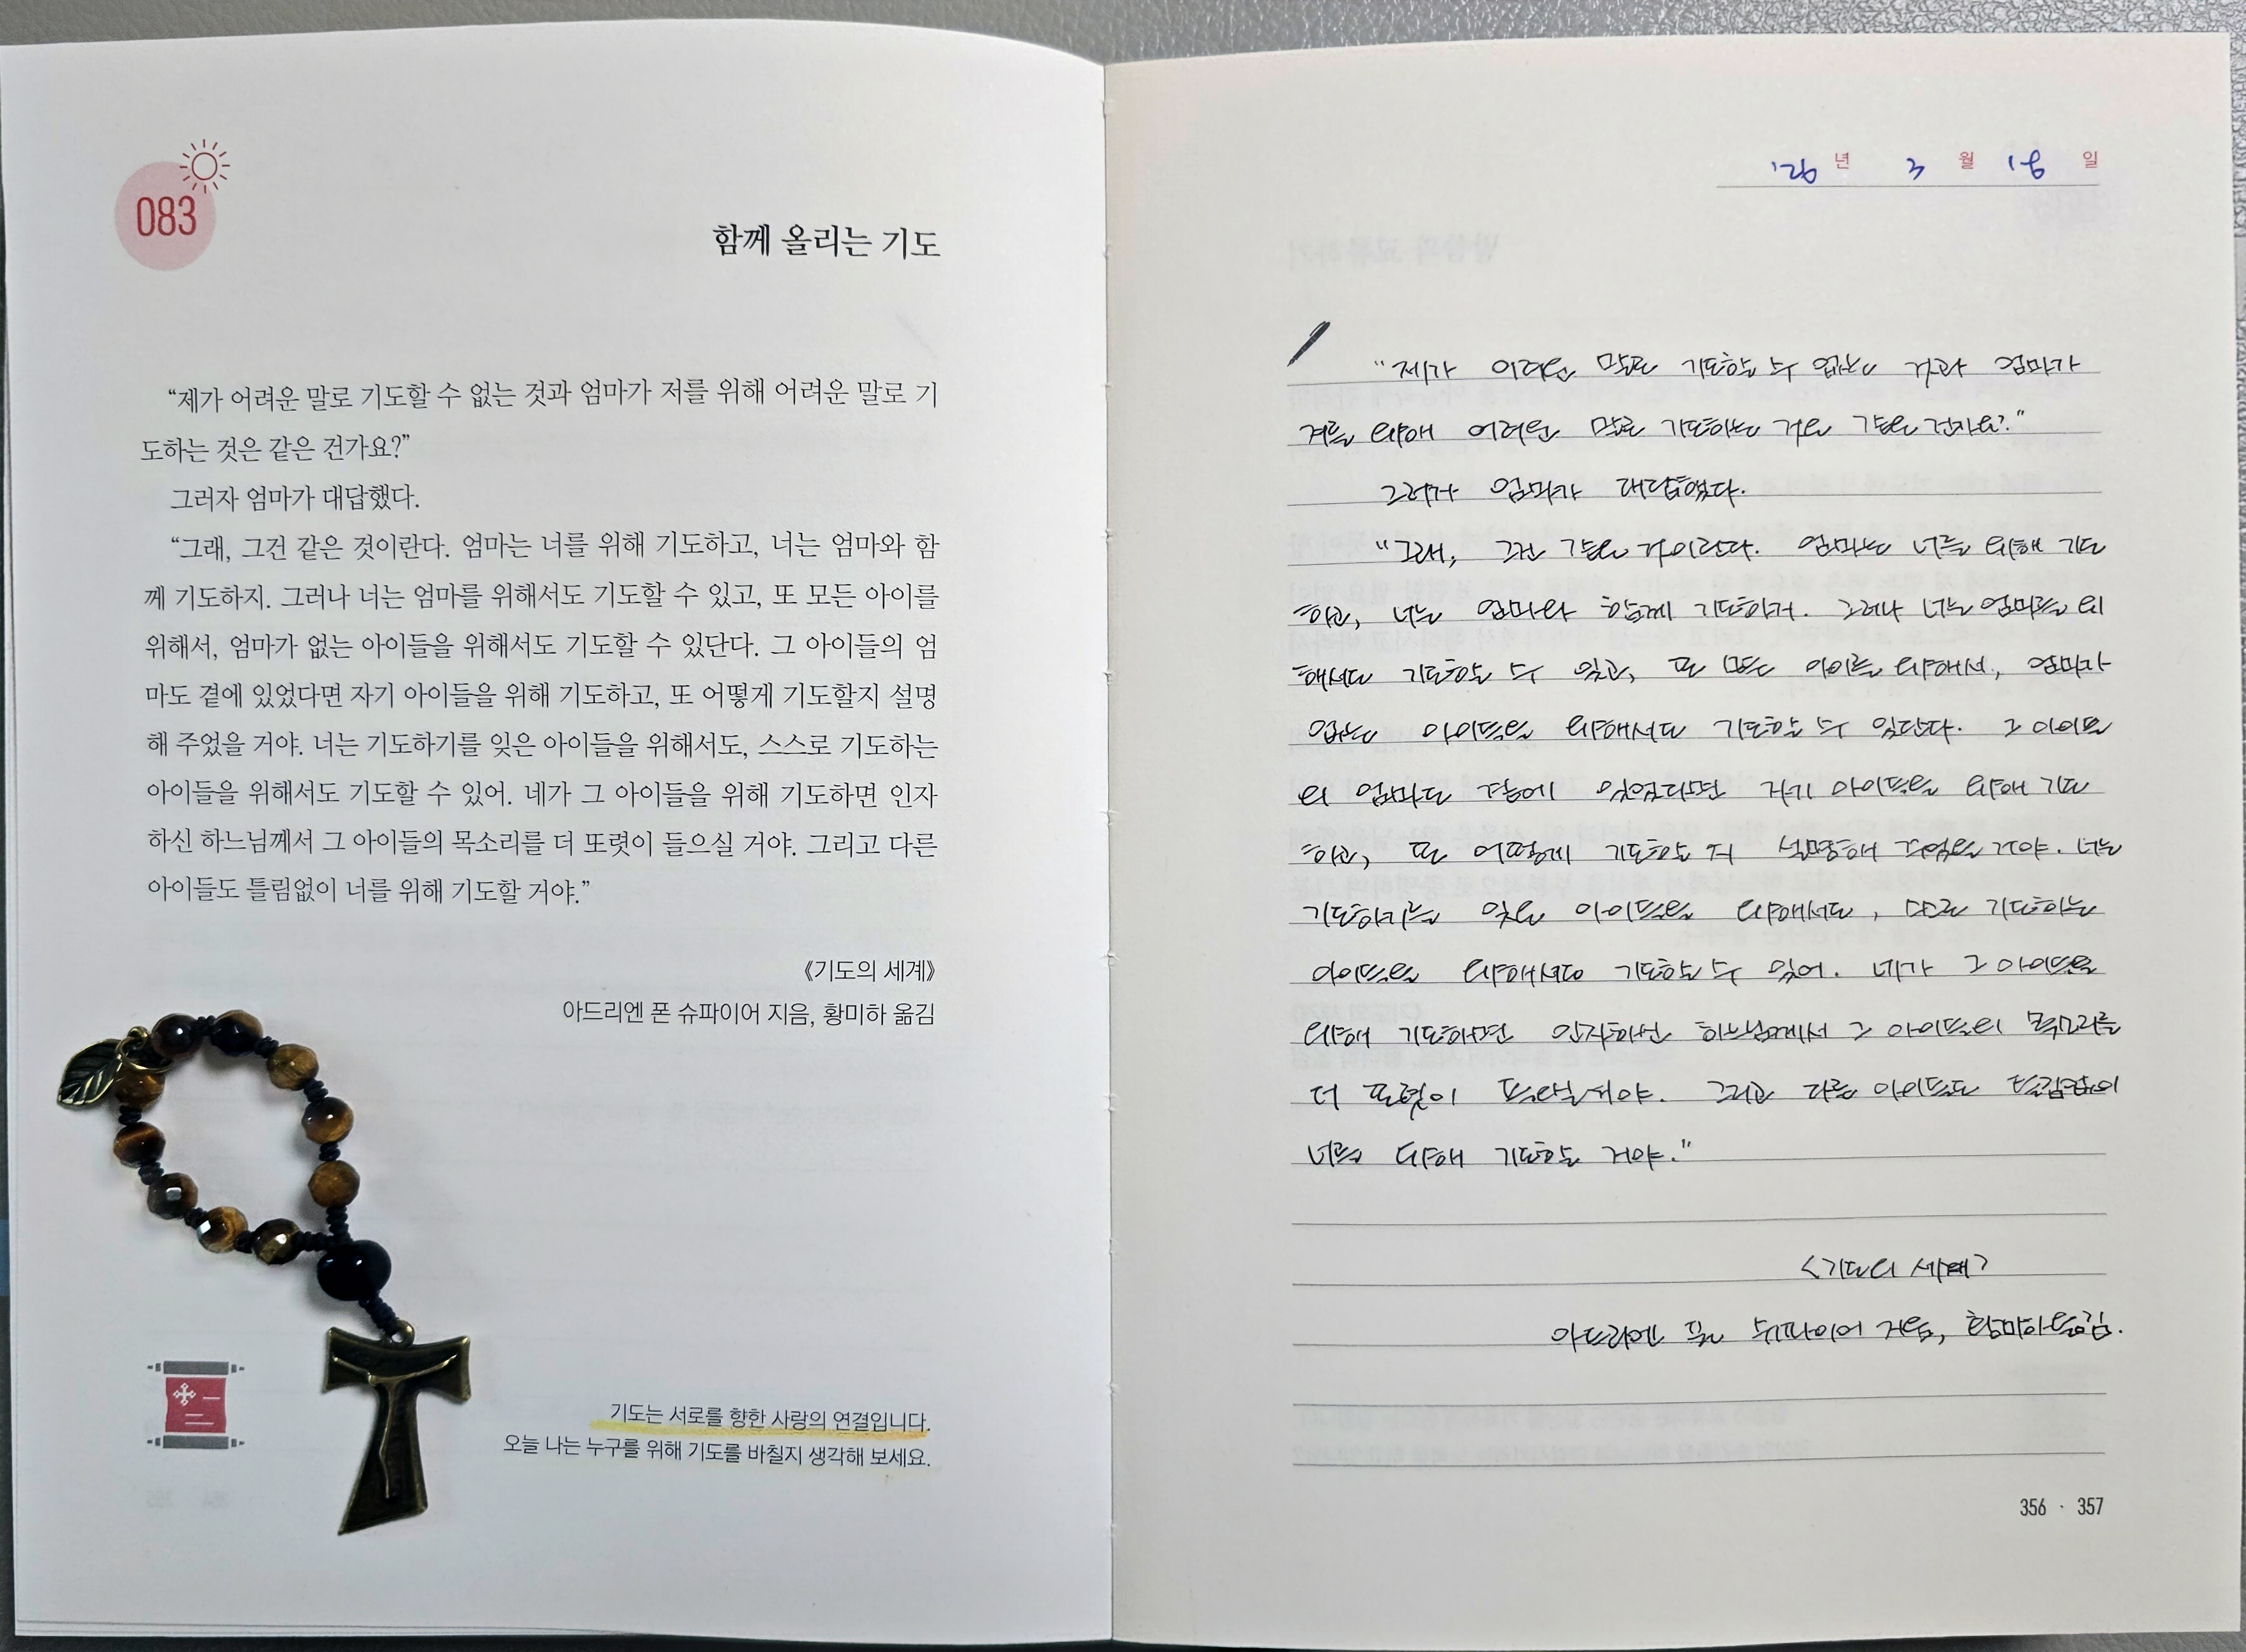 083
함께 올리는 기도
“제가 어려운 말로 기도할 수 없는 것과 엄마가 저를 위해 어려운 말로 기
도하는 것은 같은 건가요?”
그러자 엄마가 대답했다.
“그래, 그건 같은 것이란다. 엄마는 너를 위해 기도하고, 너는 엄마와 함
께 기도하지. 그러나 너는 엄마를 위해서도 기도할 수 있고, 또 모든 아이를
위해서, 엄마가 없는 아이들을 위해서도 기도할 수 있단다. 그 아이들의 엄
마도 곁에 있었다면 자기 아이들을 위해 기도하고, 또 어떻게 기도할지 설명
해 주었을 거야. 너는 기도하기를 잊은 아이들을 위해서도, 스스로 기도하는
아이들을 위해서도 기도할 수 있어. 네가 그 아이들을 위해 기도하면 인자
하신 하느님께서 그 아이들의 목소리를 더 또렷이 들으실 거야. 그리고 다른
아이들도 틀림없이 너를 위해 기도할 거야.”
《기도의 세계》
아드리엔 폰 슈파이어 지음, 황미하 옮김
기도는 서로를 향한 사랑의 연결입니다.
오늘 나는 누구를 위해 기도를 바칠지 생각해 보세요.
'26 년 3 월 18 일
“제가 어려운 말로 기도할 수 없는 것과 엄마가
저를 위해 어려운 말로 기도하는 것은 같은 건가요?”
그러자 엄마가 대답했다.
“그래, 그건 같은 것이란다. 엄마는 너를 위해 기도
하고, 너는 엄마와 함께 기도하지. 그러나 너는 엄마를 위
해서도 기도할 수 있고, 또 모든 아이를 위해서, 엄마가
없는 아이들을 위해서도 기도할 수 있단다. 그 아이들
의 엄마도 곁에 있었다면 자기 아이들을 위해 기도
하고, 또 어떻게 기도할 지 설명해 주었을 거야. 너는
기도하기를 잊은 아이들을 위해서도, 스스로 기도하는
아이들을 위해서도 기도할 수 있어. 네가 그 아이들을
위해 기도하면 인자하신 하느님께서 그 아이들의 목소리를
더 또렷이 들으실 거야. 그리고 다른 아이들도 틀림없이
너를 위해 기도할 거야.”
<기도의 세계>
아드리엔 폰 슈파이어 지음, 황미하 옮김.
356 · 357